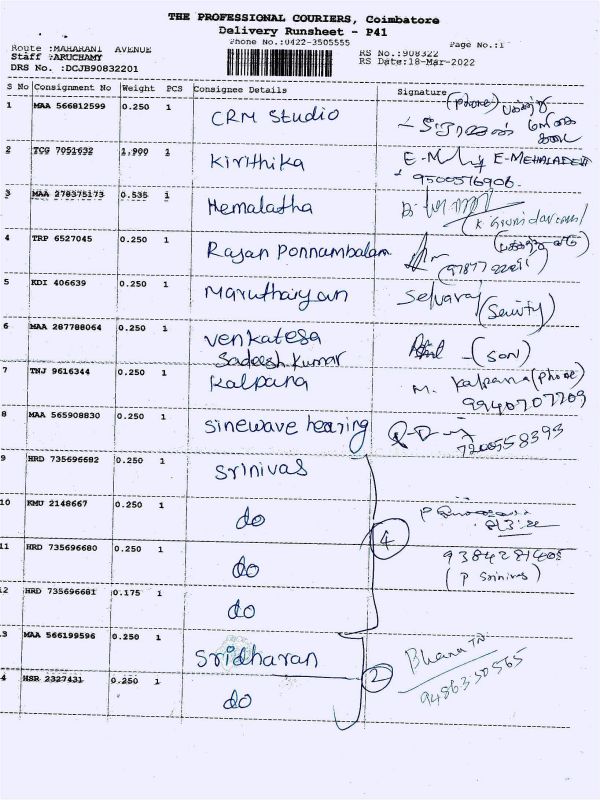 THE PROFESSIONAL COURIERS, Coimbatore
Delivery Runsheet - P41
Phone No.:0422-3505555
Page No.:1
Route :MAHARANI AVENUE
RS No.:908322
Staff :ARUCHAMY
RS Date:18-Mar-2022
DRS No. :DCJB90832201
S No Consignment No Weight PCS Consignee Details Signature
1 MAA 566812599 0.250 1 CRM Studio (Phone)
2 TCG 7051632 1.900 1 Kirithika E-MEHALADEVI
9500576906
3 MAA 278375173 0.535 1 Hemalatha
4 TRP 6527045 0.250 1 Rajan Ponnambalam
5 KDI 406639 0.250 1 Maruthaiyan Selvaraj (Seurity)
6 MAA 287788064 0.250 1 Venkatesa (Son)
Sadeesh Kumar
7 TNJ 9616344 0.250 1 Kalpana M. Kalpana (Phone)
9940707709
8 MAA 565908830 0.250 1 Sinewave hearing
7200558393
9 HRD 735696682 0.250 1 Srinivas
10 KMU 2148667 0.250 1 do
4
11 HRD 735696680 0.250 1 do
(P Srinivas)
12 HRD 735696681 0.175 1 do
13 MAA 566199596 0.250 1 Sridharan
2
14 HSR 2327431 0.250 1 do